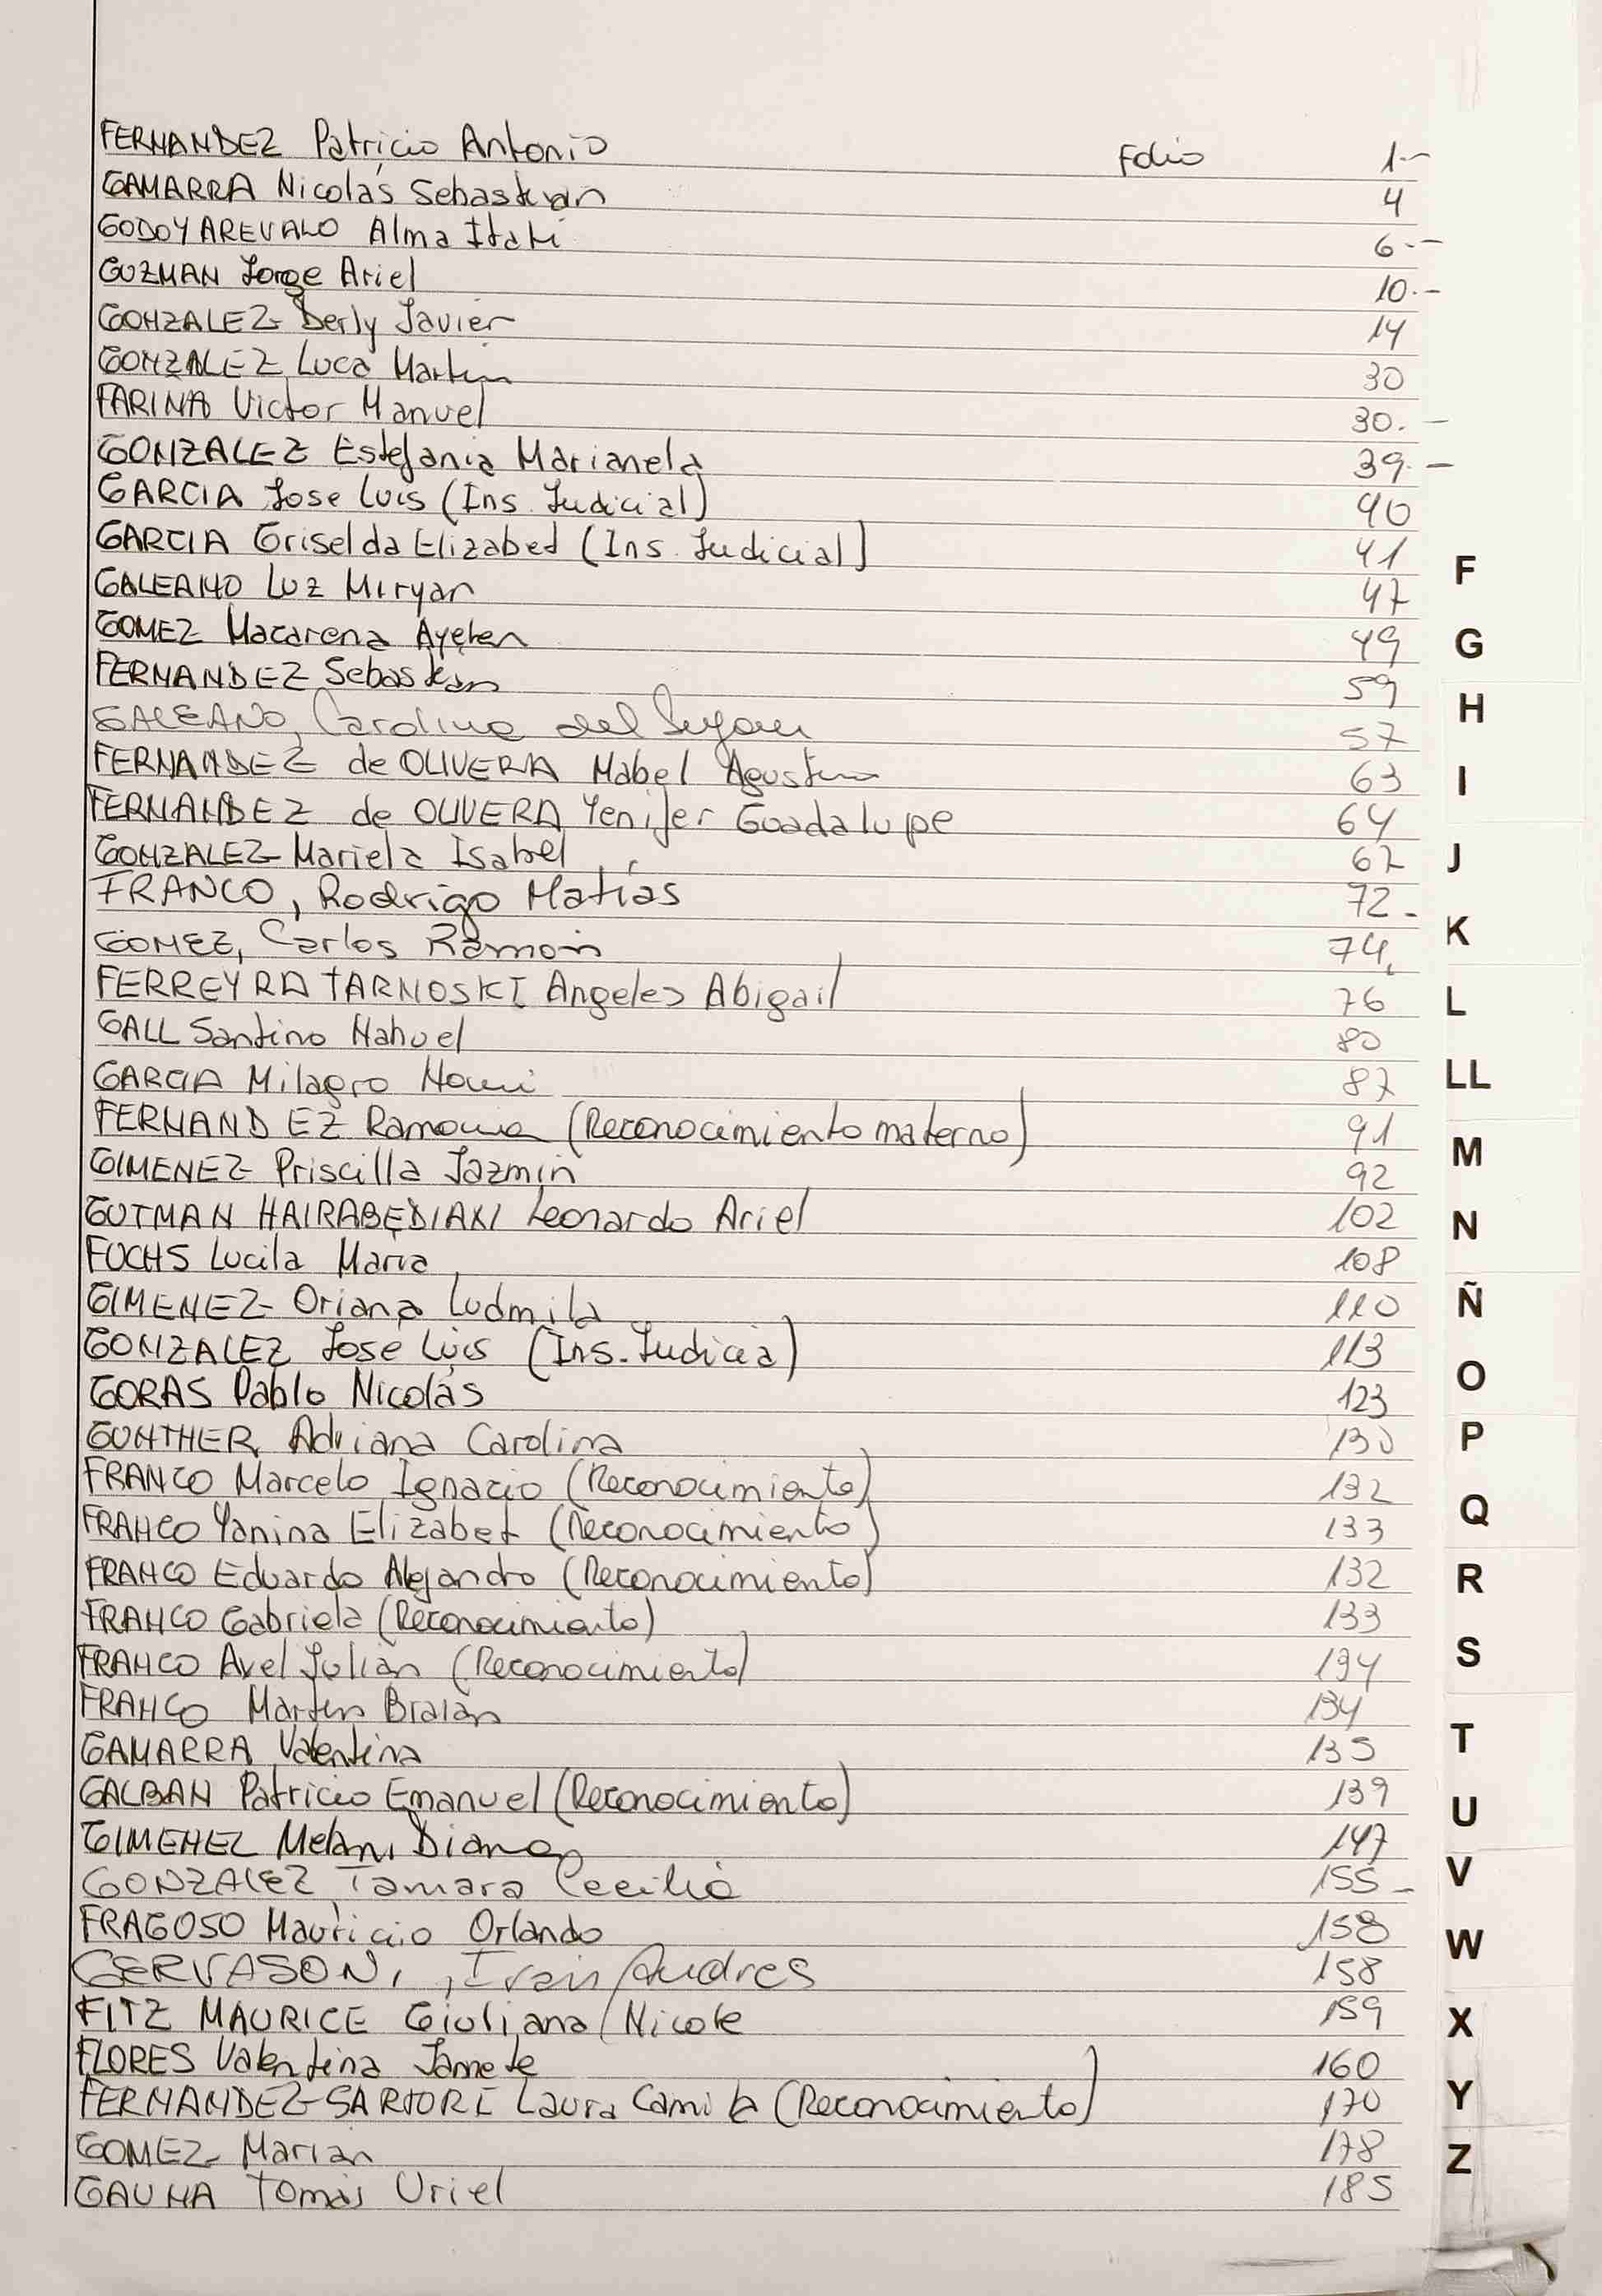 FERNANDEZ Patricio Antonio Folio 1.-
GAMARRA Nicolás Sebastian 4
GODOY AREVALO Alma Itati 6.-
GUZMAN Jorge Ariel 10.-
GONZALEZ Derly Javier 14
GONZALEZ Luca Martin 30
FARINA Victor Manuel 30.-
GONZALEZ Estefania Marianela 39.-
GARCIA Jose Luis (Ins. Judicial) 40
GARCIA Griselda Elizabed (Ins. Judicial) 41
GALEANO Luz Miryan 47
GOMEZ Macarena Ayelen 49
FERNANDEZ Sebastian 59
GALEANO, Carolina del 57
FERNANDEZ de OLIVERA Mabel Agustina 63
FERNANDEZ de OLIVERA Yenifer Guadalupe 64
GONZALEZ Mariela Isabel 67
FRANCO, Rodrigo Matías 72.
GOMEZ, Carlos Ramón 74,
FERREYRA TARNOSKI Angeles Abigail 76
GALL Santino Nahuel 80
GARCIA Milagro Noemi 87
FERNANDEZ Ramona (Reconocimiento materno) 91
GIMENEZ Priscilla Jazmin 92
GUTMAN HAIRABEDIAN Leonardo Ariel 102
FUCHS Lucila Maria 108
GIMENEZ Oriana Ludmila 110
GONZALEZ Jose Luis (Ins. Judicia) 113
GORAS Pablo Nicolás 123
GUNTHER, Adriana Carolina 130
FRANCO Marcelo Ignacio (Reconocimiento) 132
FRANCO Yanina Elizabet (Reconocimiento) 133
FRANCO Eduardo Alejandro (Reconocimiento) 132
FRANCO Gabriela (Reconocimiento) 133
FRANCO Axel Julian (Reconocimiento) 134
FRANCO Martin Braian 134
GAMARRA Valentina 135
GALBAN Patricio Emanuel (Reconocimiento) 139
GIMENEZ Melani Diana 147
GONZALEZ Tamara Cecilia 155-
FRAGOSO Mauricio Orlando 158
GERVASONI, Ivan Andres 158
FITZ MAURICE Giuliana Nicole 159
FLORES Valentina Jamete 160
FERNANDEZ SARTORI Laura Camila (Reconocimiento) 170
GOMEZ Marian 178
GAUNA Tomás Uriel 185
F
G
H
I
J
K
L
LL
M
N
Ñ
O
P
Q
R
S
T
U
V
W
X
Y
Z